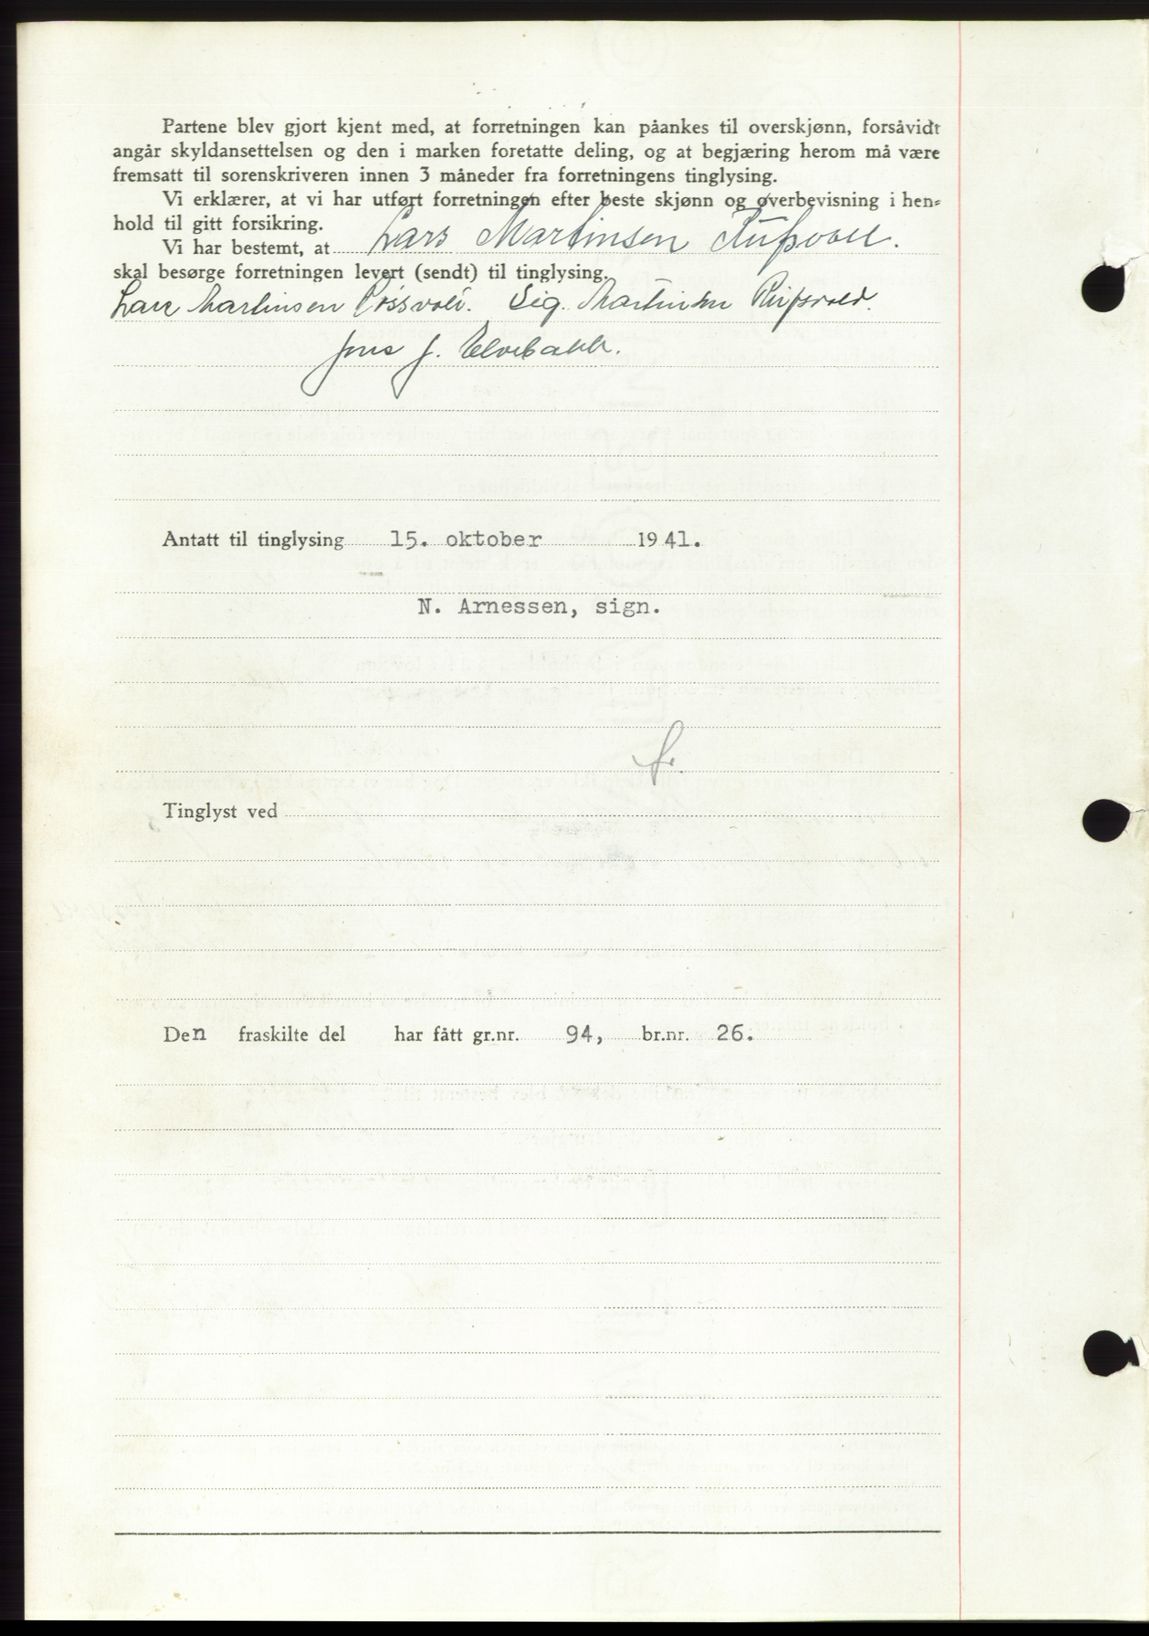 Partene blev gjort kjent med, at forretningen kan påankes til overskjønn, forsåvidt
angår skyldansettelsen og den i marken foretatte deling, og at begjæring herom må være
fremsatt til sorenskriveren innen 3 måneder fra forretningens tinglysing.
Vi erklærer, at vi har utført forretningen efter beste skjønn og overbevisning i hen=
hold til gitt forsikring.
Vi har bestemt, at Lars Martinsen
skal besørge forretningen levert (sendt) til tinglysing.
Lars Martinsen Røssvold. Sig. Martinsen
Jens J. Elvebakk.
Antatt til tinglysing 15. oktober 1941.
N. Arnessen, sign.
Tinglyst ved
Den fraskilte del har fått gr.nr. 94, br.nr. 26.